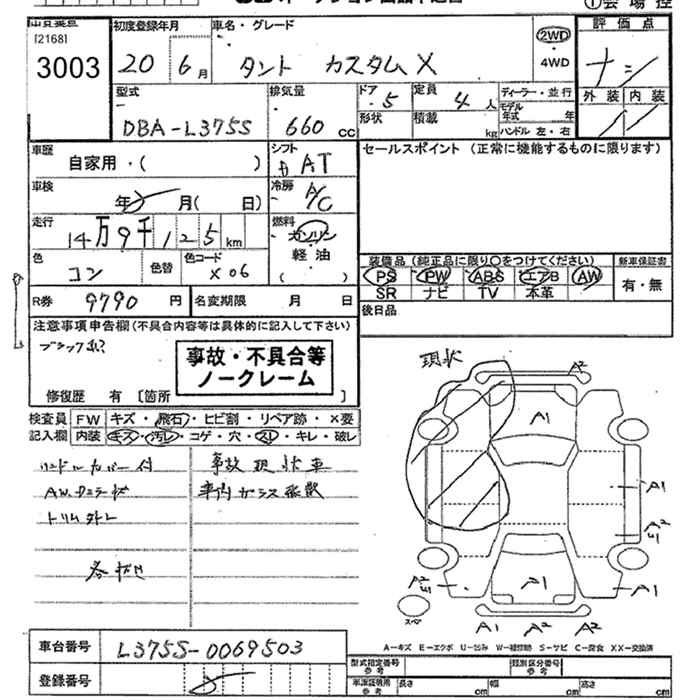 ①会場控
出品票番
[2168]
3003
初度登録年月
20 6月
車名・グレード
タント カスタムX
2WD
4WD
評価点
外装 内装
型式
DBA-L375S
排気量
660 cc
ドア
5
形状
定員
4人
積載
kg
ディーラー・並行
モデル年式 年
ハンドル 左・右
車歴
自家用・( )
シフト
AT
セールスポイント (正常に機能するものに限ります)
車検
年 月( 日)
冷房
A/C
走行
14万9千125km
燃料
ガソリン
軽油
( )
色
コン
色替
色コード
X06
装備品(純正品に限り〇をつけてください)
PS PW ABS エアB AW
SR ナビ TV 本革
新車保証書
有・無
R券
9790円
名変期限 月 日
後日品
注意事項申告欄(不具合内容等は具体的に記入して下さい)
事故・不具合等
ノークレーム
修復歴 有[箇所 ]
現状
検査員
記入欄
FW キズ・飛石・ヒビ割・リペア跡・×要
内装 キズ・汚レ・コゲ・穴・スレ・キレ・破レ
ハンドルカバー付
事故現状車
車内ガラス散乱
トリム外レ
A2
A1
A1
A2
A1
A2
A1
A1
A1
A2
A2
スペア
車台番号
L375S-0069503
登録番号
A-キズ E-エクボ U-凹み W-補修跡 S-サビ C-腐食 XX-交換済
型式指定番号
参考
類別区分番号
車庫証明用
参考
長さ cm
幅 cm
高さ cm